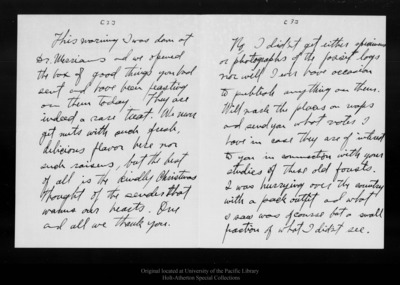 [2]
This morning I was down at
Dr. Merriams and we opened
the box of good things you had
sent and have been feasting
on them today. They are
indeed a rare treat. We never
get nuts with such fresh,
delicious flavor here nor
such raisins, but the best
of all is the kindly Christmas
thought of the senders that
warms our hearts. One
and all we thank you.
[3]
No, I didn't get either specimens
or photographs of the forest logs
nor will I ever have occasion
to publish anything on them.
Will mark the places on maps
and send you what notes I
have in case they are of interest
to you in connection with your
studies of these old forests.
I was hurrying over the country
with a pack outfit and what
I saw was of course but a small
portion of what I didn't see.
Original located at University of the Pacific Library
Holt-Atherton Special Collections